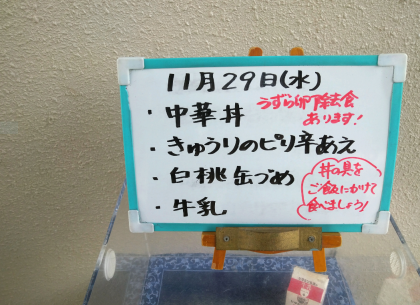 11月29日(水)
・中華丼
うずら卵除去食
あります!
・きゅうりのピリ辛あえ
・白桃缶づめ
・牛乳
丼の具を
ご飯にかけて
食べましょう!